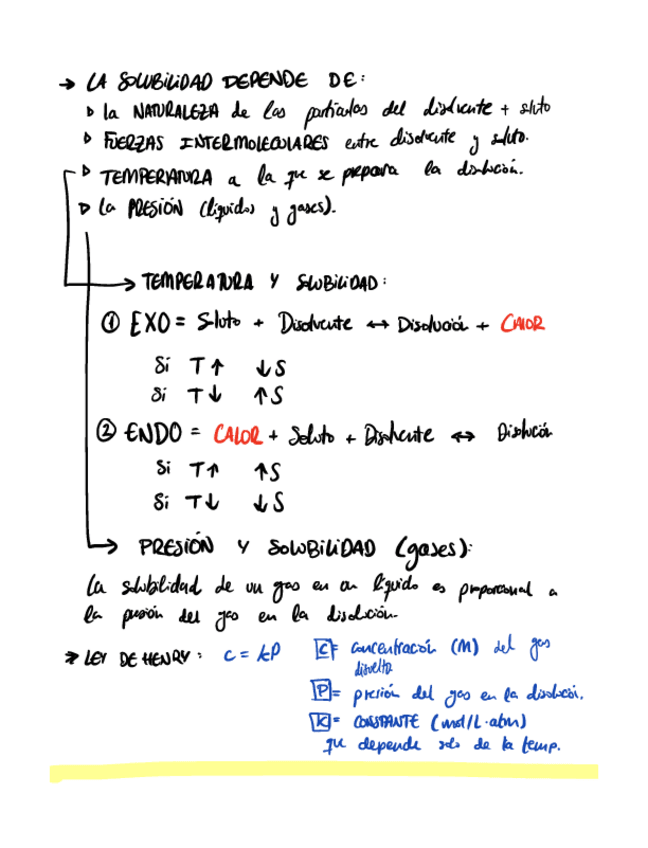 → LA SOLUBILIDAD DEPENDE DE:
▹ la NATURALEZA de las partículas del disolvente + soluto
▹ FUERZAS INTERMOLECULARES entre disolvente y soluto.
▹ TEMPERATURA a la que se prepara la disolución.
▹ la PRESIÓN (líquidos y gases).
→ TEMPERATURA Y SOLUBILIDAD:
① EXO = Soluto + Disolvente ↔ Disolución + CALOR
Si T↑ ↓S
Si T↓ ↑S
② ENDO = CALOR + Soluto + Disolvente ↔ Disolución
Si T↑ ↑S
Si T↓ ↓S
→ PRESIÓN Y SOLUBILIDAD (gases):
La solubilidad de un gas en un líquido es proporcional a
la presión del gas en la disolución.
→ LEY DE HENRY: c = kP
C = concentración (M) del gas
disuelto
P = presión del gas en la disolución.
K = CONSTANTE (mol/L·atm)
que depende solo de la temp.